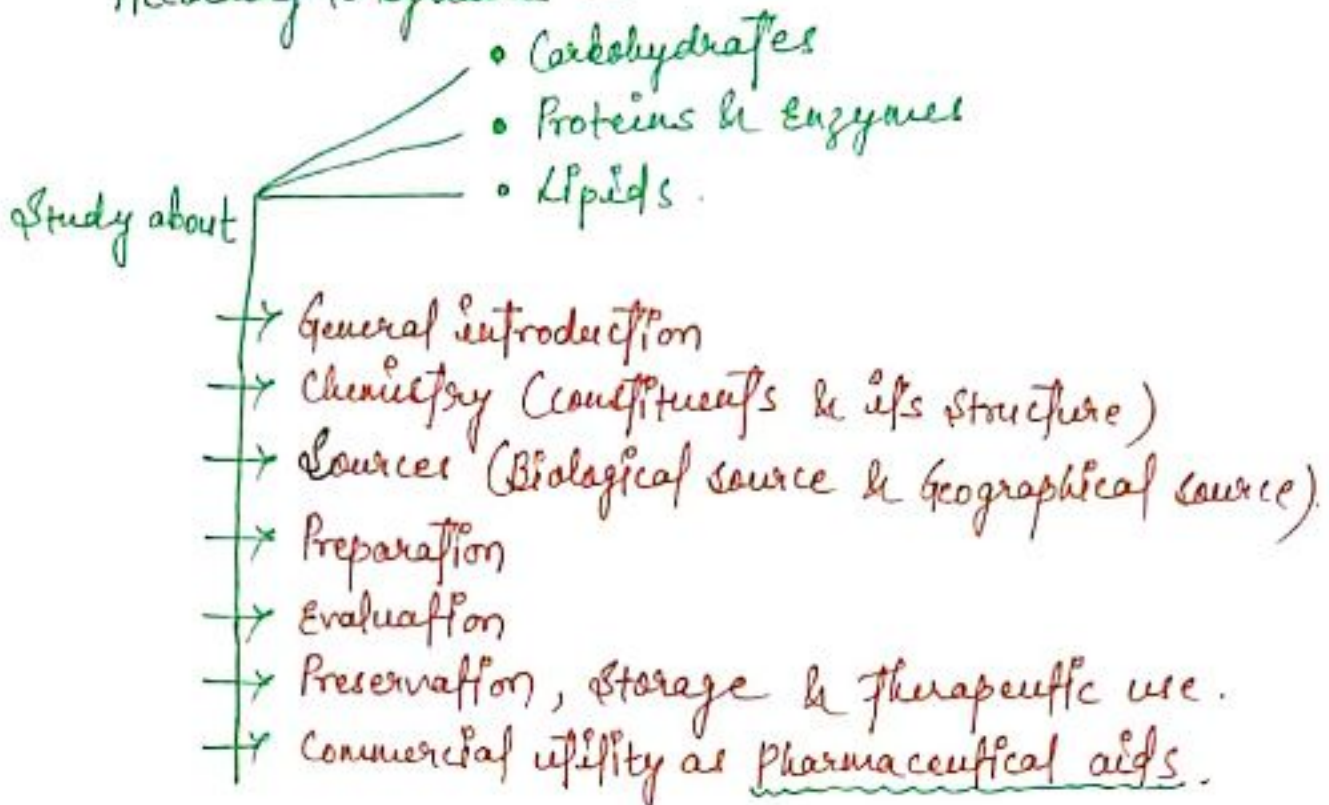 According to
• Carbohydrates
• Proteins & Enzymes
• Lipids.
Study about
→ General introduction
→ Chemistry (constituents & its structure)
→ Sources (Biological source & Geographical source).
→ Preparation
→ Evaluation
→ Preservation, Storage & therapeutic use.
→ Commercial utility as pharmaceutical aids.